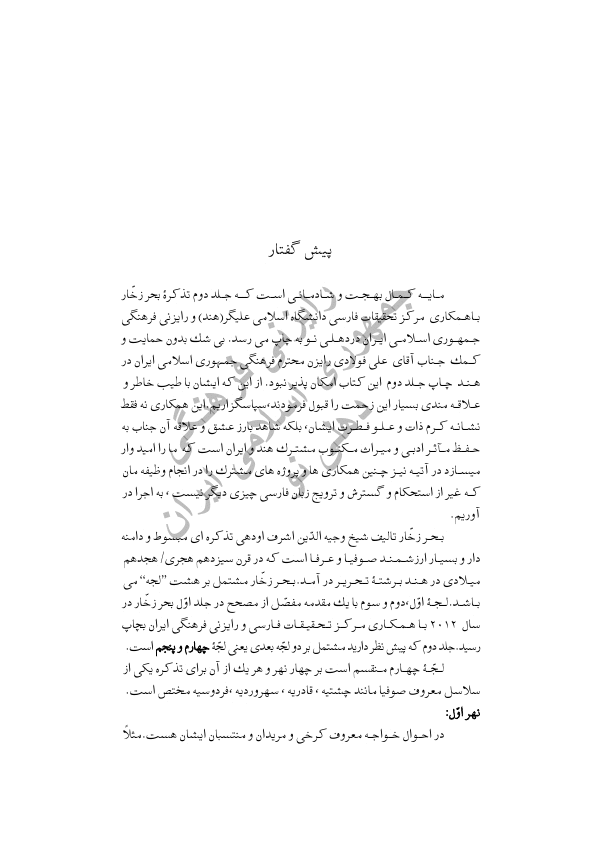 پیش گفتار
مایه کمال بهجت و شادمانی است که جلد دوم تذکرۀ بحر زخّار
باهمکاری مرکز تحقیقات فارسی دانشگاه اسلامی علیگر(هند) و رایزنی فرهنگی
جمهوری اسلامی ایران دردهلی نو به چاپ می رسد. بی شك بدون حمایت و
كمك جناب آقای علی فولادی رایزن محترم فرهنگی جمهوری اسلامی ایران در
هند چاپ جلد دوم این کتاب امکان پذیر نبود. از این که ایشان با طیب خاطر و
علاقه مندی بسیار این زحمت را قبول فرمودند،سپاسگزاریم.این همکاری نه فقط
نشانه کرم ذات و علو فطرت ایشان، بلکه شاهد بارز عشق و علاقه آن جناب به
حفظ مآثر ادبی و میراث مکتوب مشترك هند و ایران است که ما را امید وار
میسازد در آتیه نیز چنین همکاری ها و پروژه های مشترك را در انجام وظیفه مان
که غیر از استحکام و گسترش و ترویج زبان فارسی چیزی دیگر نیست ، به اجرا در
آوریم.
بحر زخّار تالیف شیخ وجیه الدّین اشرف اودهی تذکره ای مبسوط و دامنه
دار و بسیار ارزشمند صوفیا و عرفا است که در قرن سیزدهم هجری/ هجدهم
میلادی در هند برشتۀ تحریر در آمد.بحر زخّار مشتمل بر هشت ”لجه“ می
باشد.لجۀ اوّل،دوم و سوم با یك مقدمه مفصّل از مصحح در جلد اوّل بحر زخار در
سال ۲۰۱۲ با همکاری مرکز تحقیقات فارسی و رایزنی فرهنگی ایران بچاپ
رسید.جلد دوم که پیش نظر دارید مشتمل بر دو لجّه بعدی یعنی لجّۀ چهارم و پنجم است.
لجّۀ چهارم منقسم است بر چهار نهر و هر یك از آن برای تذکره یکی از
سلاسل معروف صوفیا مانند چشتیه ، قادریه ، سهروردیه ،فردوسیه مختص است.
نهر اوّل:
در احوال خواجه معروف کرخی و مریدان و منتسبان ایشان هست.مثلاً
رایزنی فرهنگی
جمهوری اسلامی ایران
دهلی نو